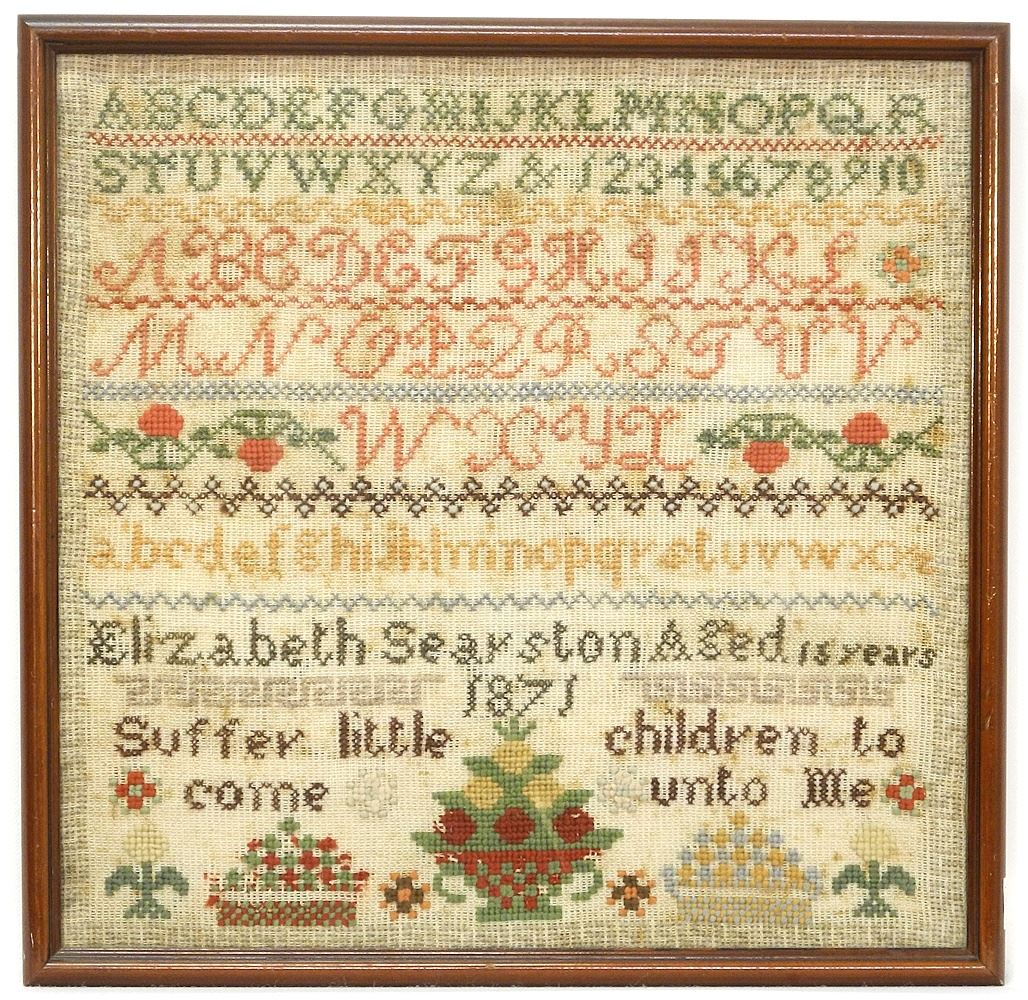 ABCDEFGHIJKLMNOPQR
STUVWXYZ & 12345678910
ABCDEFGHIJKL
MNOPQRSTUV
WXYZ
abcdefghijklmnopqrstuvwxyz
Elizabeth Searston Aged 15 years
1871
Suffer little children to
come unto Me